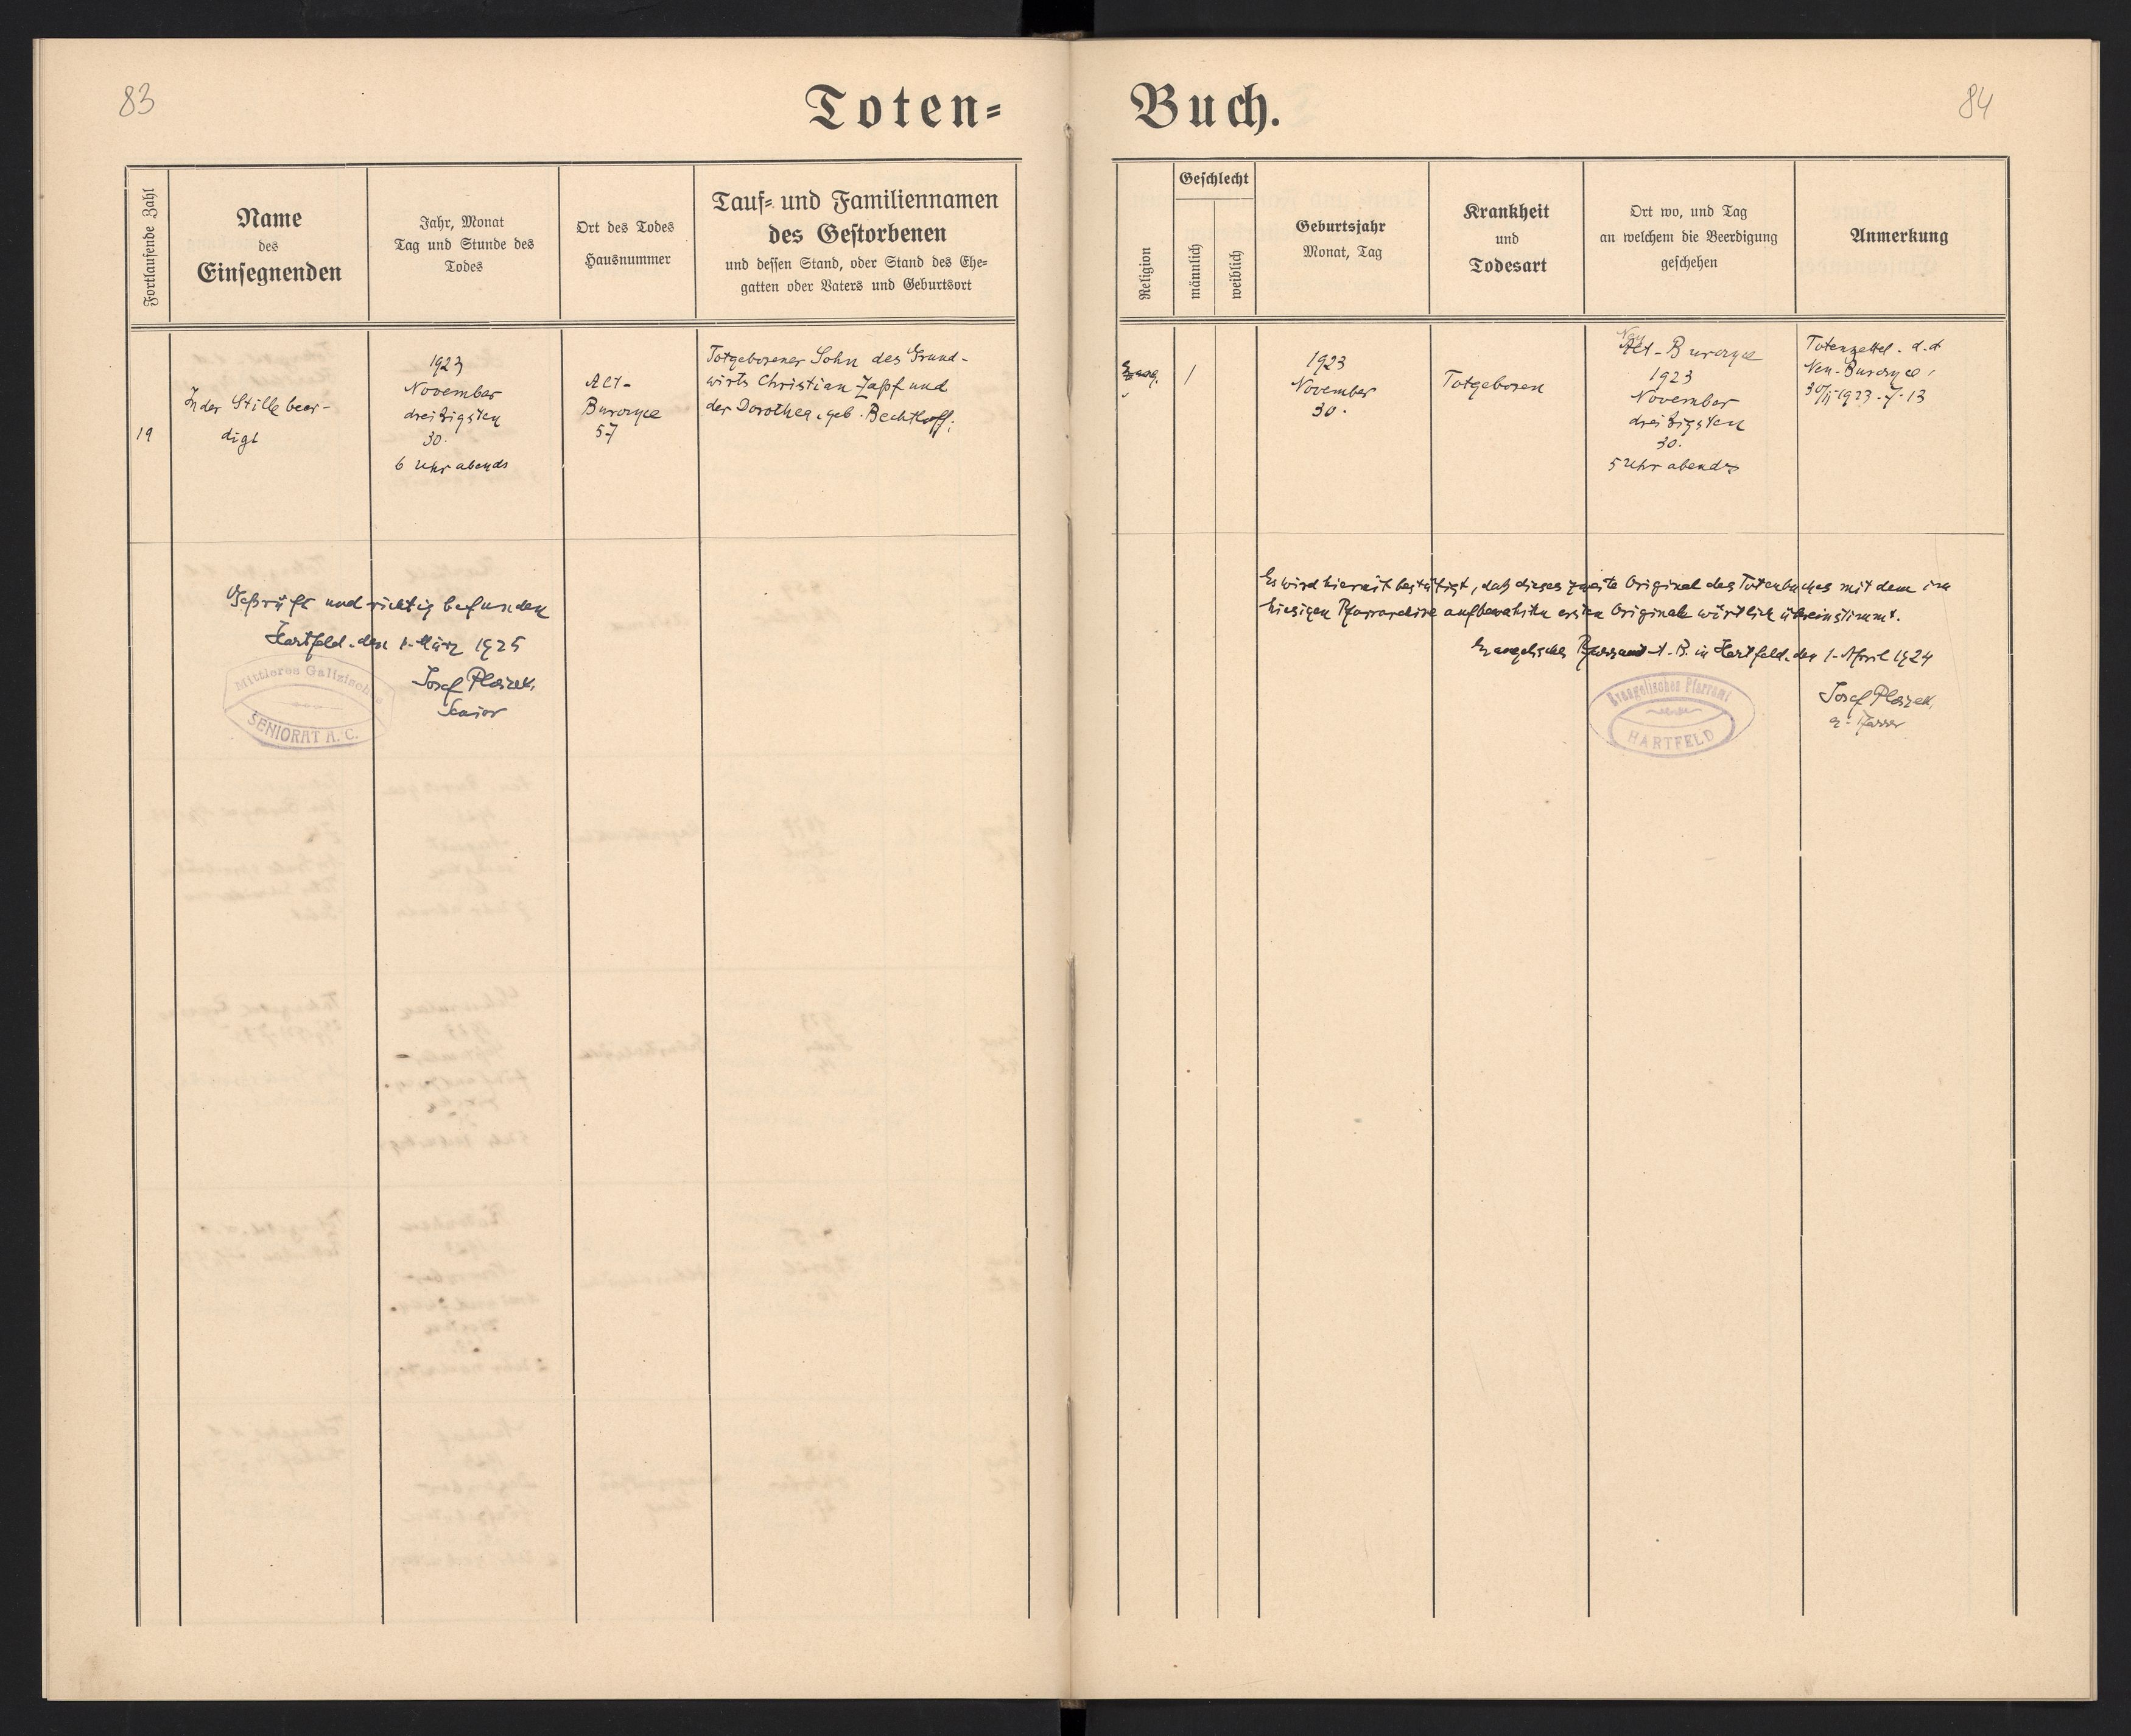 83
Toten=
Fortlaufende Zahl
Name
des
Einsegnenden
Jahr, Monat
Tag und Stunde des
Todes
Ort des Todes
Hausnummer
Tauf= und Familiennamen
des Gestorbenen
und dessen Stand, oder Stand des Ehe=
gatten oder Vaters und Geburtsort
19
In der Stille beer-
digt
1923
November
dreißigsten
30.
6 Uhr abends
Alt-
Burczyce
57
Totgeborener Sohn des Grund-
wirts Christian Zapf und
der Dorothea, geb. Bechtloff;
Geprüft und richtig befunden
Hartfeld, den 1. März 1925
Josef Ploszek,
Senior
Mittleres Galizisches
SENIORAT A. C.
84
Buch.
Religion
Geschlecht
männlich
weiblich
Geburtsjahr
Monat, Tag
Krankheit
und
Todesart
Ort wo, und Tag
an welchem die Beerdigung
geschehen
Anmerkung
Evang.
1
1923
November
30.
Totgeboren
Neu
Alt-Burczyce
1923
November
dreißigsten
30.
5 Uhr abends
Totenzettel. d.d
Neu-Burczyce,
30/11 1923. 7. 13
Es wird hiermit bestätigt, daß dieses zweite Original des Totenbuches mit dem im
hiesigen Pfarrarchive aufbewahrten ersten Originale wörtlich übereinstimmt.
Evangelisches Pfarramt A. B. in Hartfeld, den 1. April 1924
Josef Ploszek,
ev. Pfarrer
Evangelisches Pfarramt
HARTFELD